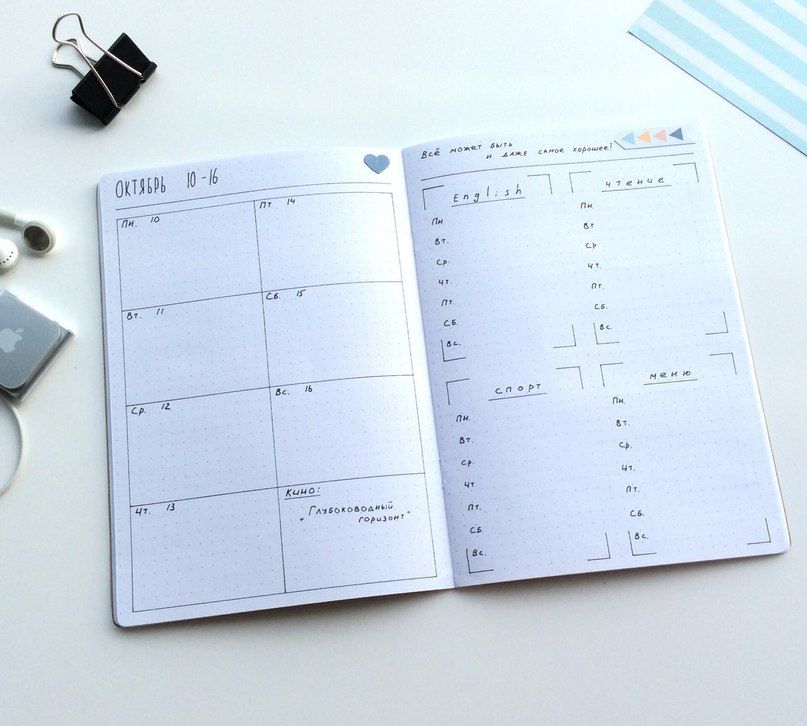 ОКТЯБРЬ 10-16
Пн. 10
Вт. 11
Ср. 12
Чт. 13
Пт 14
Сб. 15
Вс. 16
Кино:
"Глубоководный
горизонт"
Всё может быть
и даже самое хорошее!
English
Пн.
Вт.
Ср.
Чт.
Пт.
Сб.
Вс.
чтение
Пн.
Вт
Ср
Чт.
Пт.
Сб.
Вс.
спорт
Пн.
Вт.
Ср.
Чт
Пт.
Сб.
Вс.
меню
Пн.
Вт.
Ср.
Чт.
Пт.
Сб.
Вс.